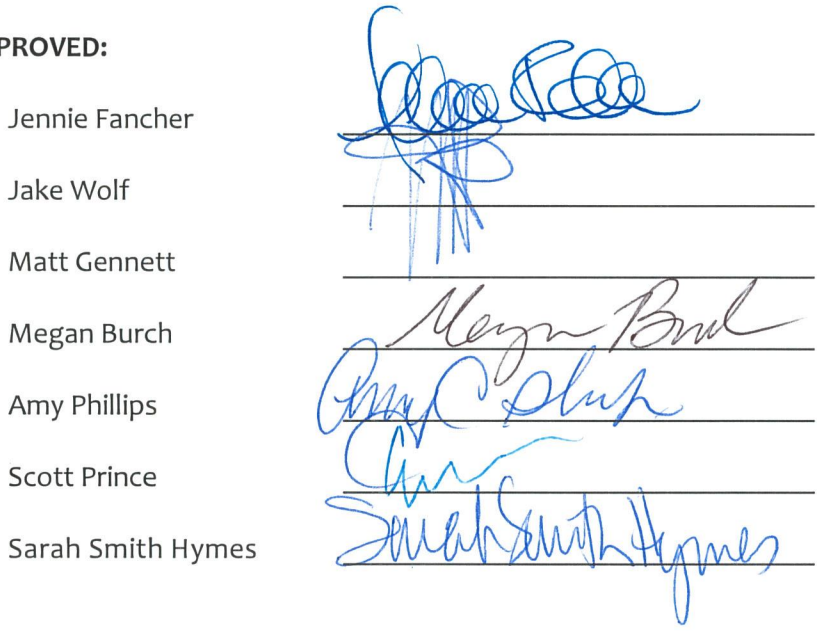 PROVED:
Jennie Fancher
Jake Wolf
Matt Gennett
Megan Burch Megan Burch
Amy Phillips Amy C Phillips
Scott Prince
Sarah Smith Hymes Sarah Smith Hymes